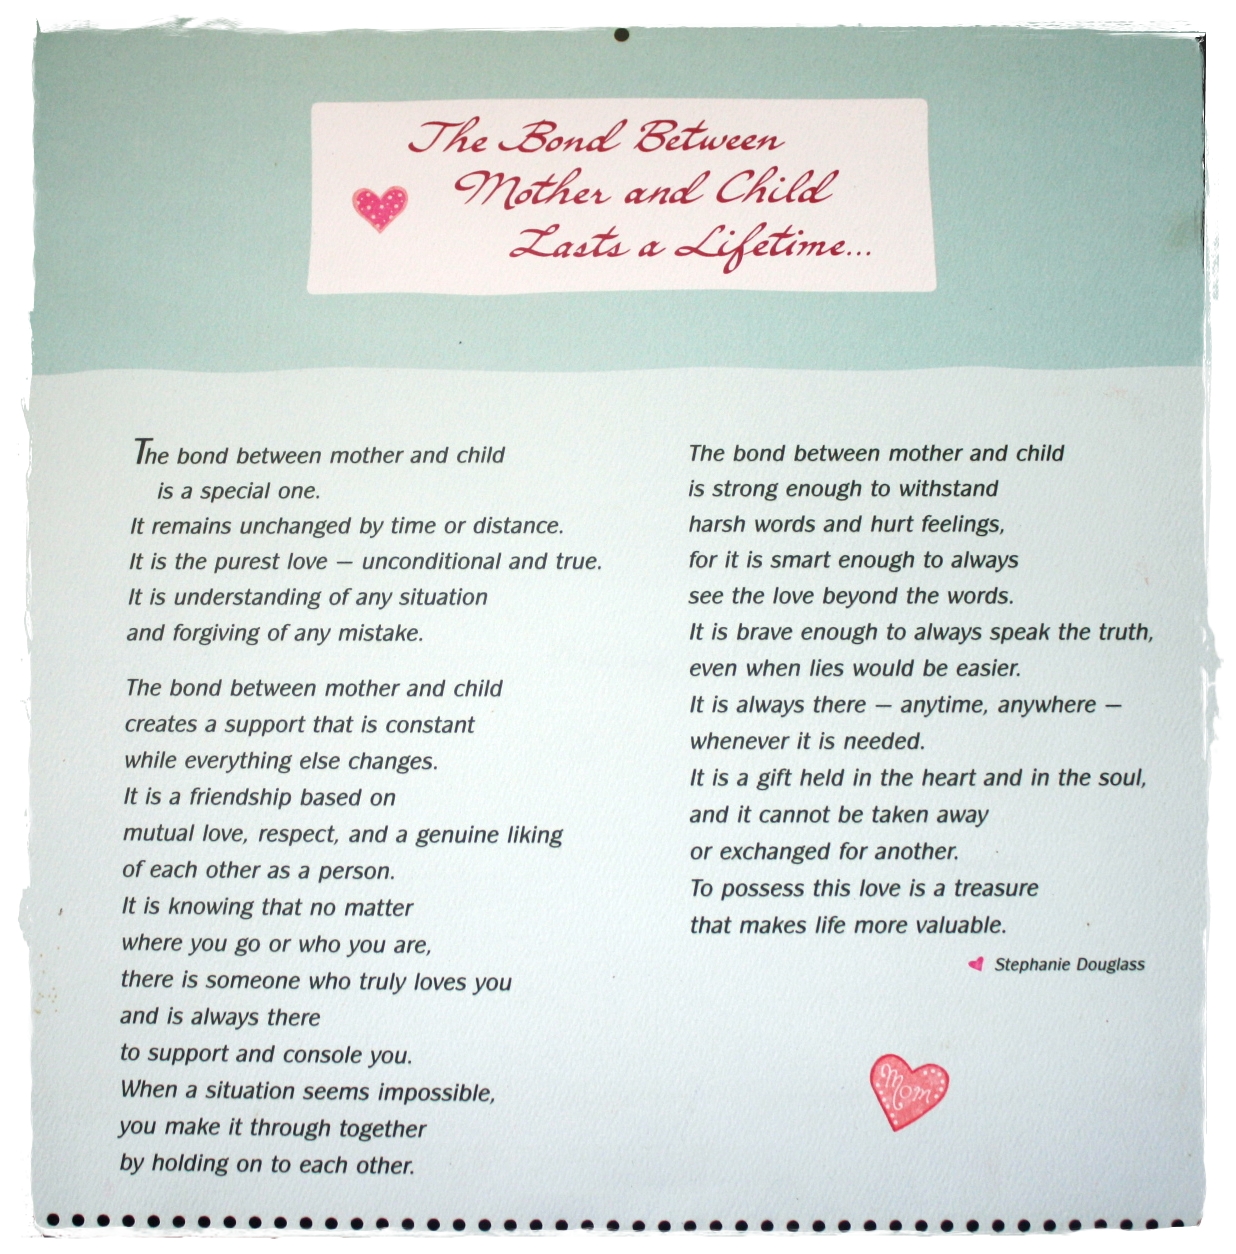 The Bond Between
Mother and Child
Lasts a Lifetime...
The bond between mother and child
is a special one.
It remains unchanged by time or distance.
It is the purest love — unconditional and true.
It is understanding of any situation
and forgiving of any mistake.
The bond between mother and child
creates a support that is constant
while everything else changes.
It is a friendship based on
mutual love, respect, and a genuine liking
of each other as a person.
It is knowing that no matter
where you go or who you are,
there is someone who truly loves you
and is always there
to support and console you.
When a situation seems impossible,
you make it through together
by holding on to each other.
The bond between mother and child
is strong enough to withstand
harsh words and hurt feelings,
for it is smart enough to always
see the love beyond the words.
It is brave enough to always speak the truth,
even when lies would be easier.
It is always there — anytime, anywhere —
whenever it is needed.
It is a gift held in the heart and in the soul,
and it cannot be taken away
or exchanged for another.
To possess this love is a treasure
that makes life more valuable.
Stephanie Douglass
Mom